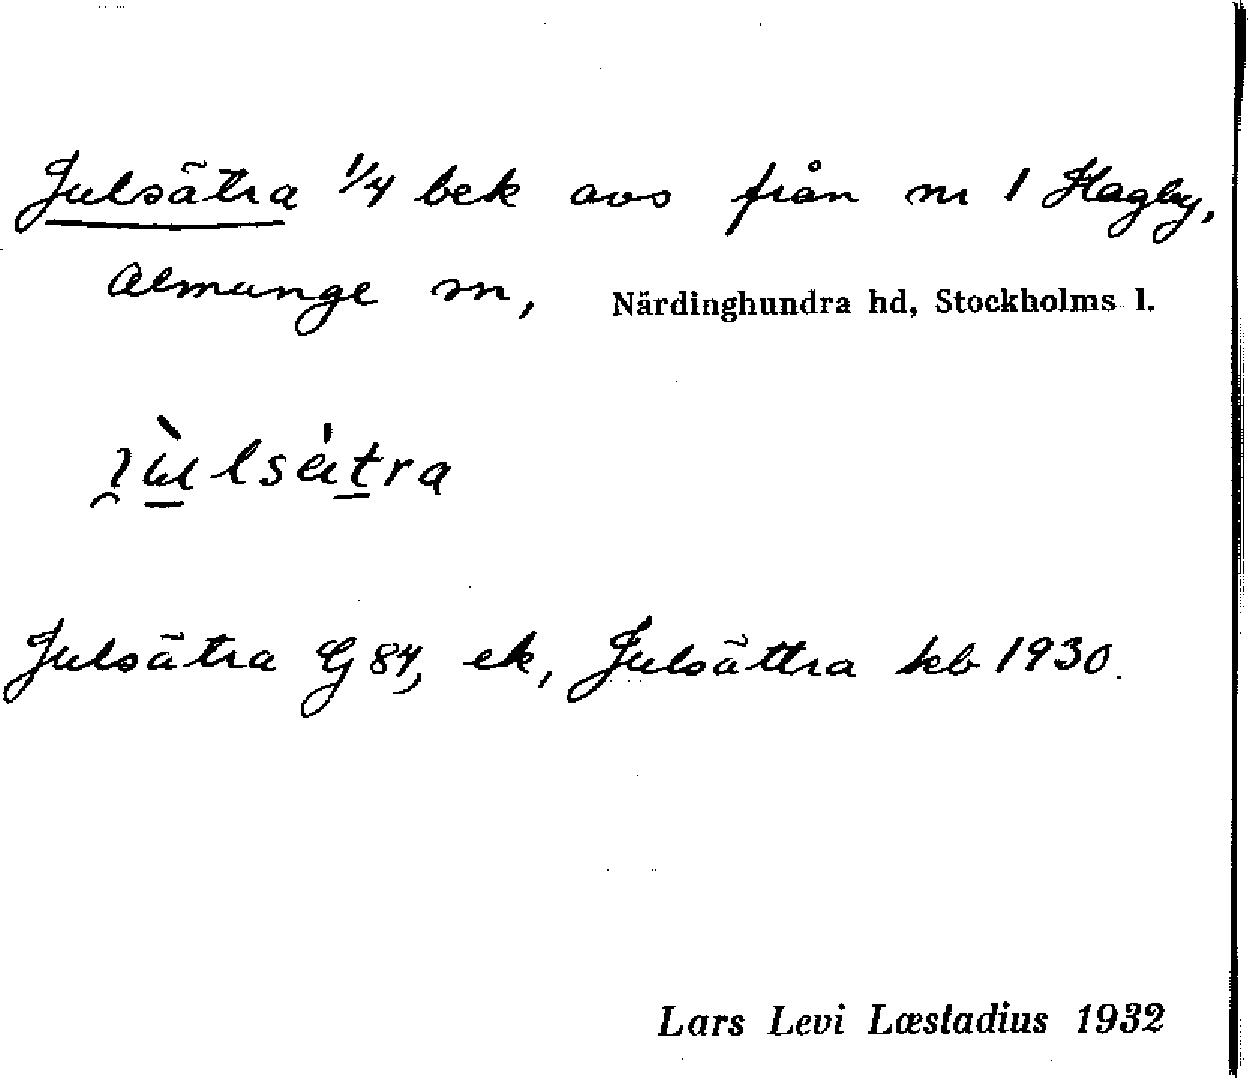 Julsätra 1/4 bek avs från nr 1 Hagby,
Almunge sn, Närdinghundra hd, Stockholms l.
Julsätra G 84, ek, Julsättra kb 1930.
Lars Levi Læstadius 1932